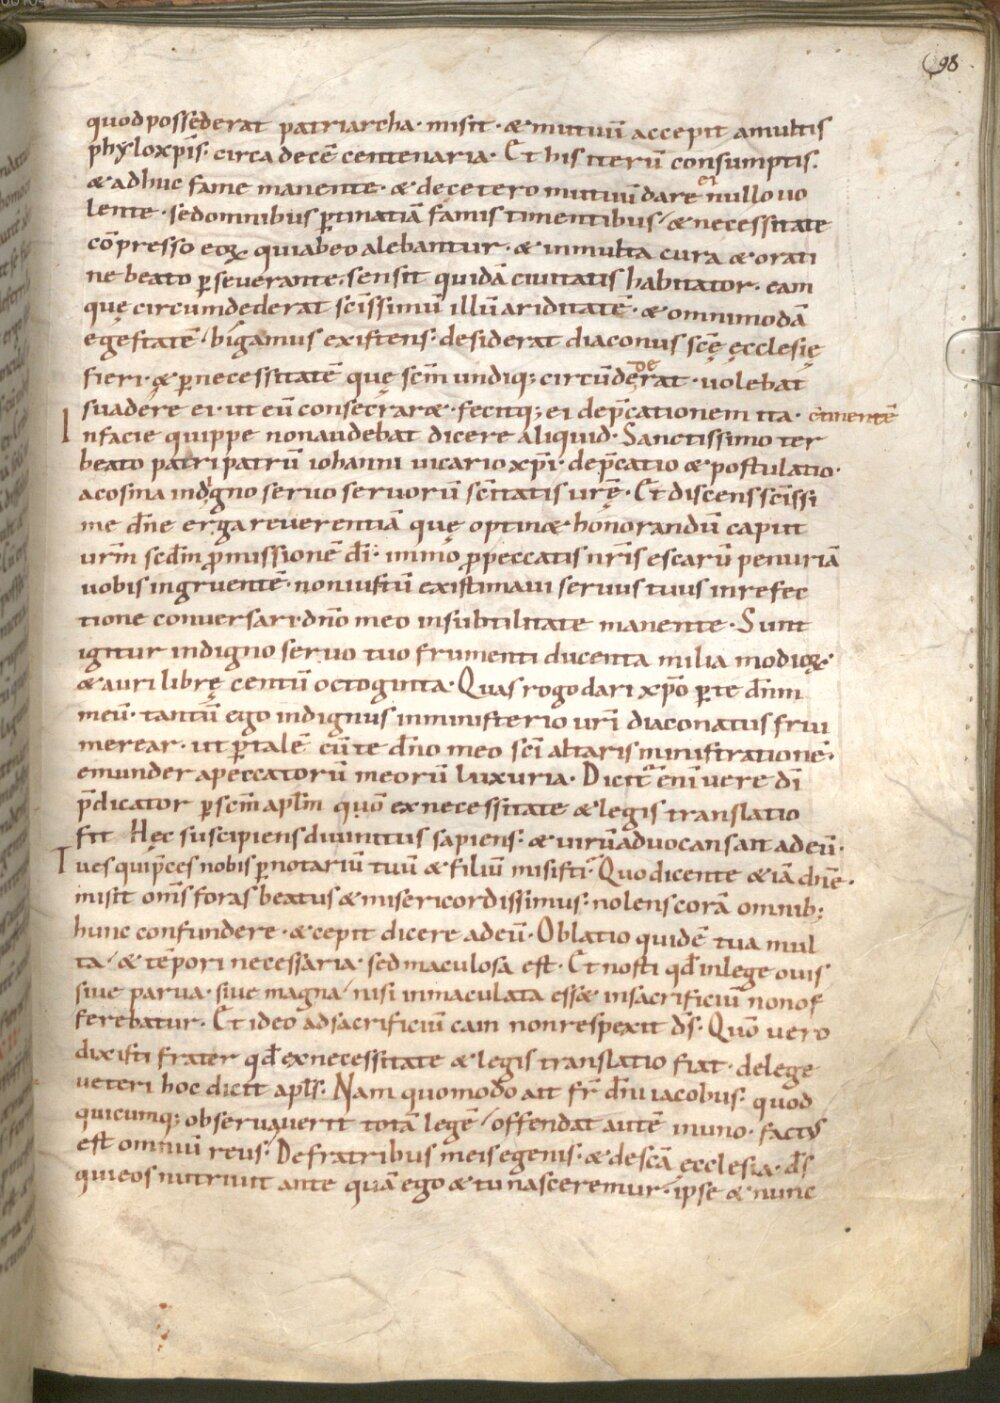 98
quod possederat patriarcha· misit· & mutuũ accepit a multis
phyloxp̃is· circa decẽ centenaria· Et his iterũ consumptis·
& adhuc fame manente· & de cetero mutuũ dare ei nullo uo
lente· sed omnibus ꝑtinatiã famis timentibus / & necessitate
cõpresso eoꝝ quia beo alebantur· & in multa cura & orati
ne beato ꝑseverante· sensit quidã civitatis habitator· eam
quę circumdederat scĩssimũ illũ ariditatẽ· & omnimodã
egestatẽ / bigamus existens· desiderat diaconus scę̃ ęcclesię
fieri· & ꝑ necessitatẽ quę scm̃ undiq; circũdederat· uolebat
suadere ei· ut eũ consecrar&· fecitq; ei dep̃cationem ita· cõtinentẽ
In facie quippe non audebat dicere aliquid· Sanctissimo ter
beato patri patrũ iohanni vicario xp̃i· dep̃catio & postulatio·
a cosma indigno servo servorũ scĩtatis urę̃· Et discens scĩssi
me dñe erga reverentiã quę optin& honorandũ caput
urm̃ scdm̃ ꝓmissionẽ dĩ· immo ꝓ peccatis nrĩs escarũ penuriã
uobis ingruentẽ· non iustũ existimaui servus tuus in refec
tione conversari· dño meo in subtilitate manente· Sunt
igitur indigno servo tuo frumenti ducenta milia modioꝝ·
& auri librę centũ octoginta· Quas rogo dari xp̃o ꝑ te dñm
meũ· tantũ ego indignus in ministerio urĩ diaconatus frui
merear· ut ꝑ talẽ cũ te dño meo scĩ altaris ministrationẽ·
emunder a peccatorũ meorũ luxuria· Dicit enĩ vere dĩ
p̃dicator ꝑ scm̃ aplm̃ quõ ex necessitate & legis translatio
fit Hęc suscipiens divinitus sapiens· & uirũ advocans ait ad eũ·
Tu es qui p̃ces nobis ꝑ notariũ tuũ & filiũ misisti· Quo dicente & iã dñe·
misit om̃s foras beatus & misericordissimus· nolens corã omnib;
hunc confundere· & cepit dicere ad eũ· Oblatio quidẽ tua mul
ta / & tẽpori necessaria· sed maculosa est· Et nosti qđ in lege ovis
sive parva· sive magna / nisi inmaculata ess& in sacrificiũ non of
ferebatur· Et ideo ad sacrificiũ cain non respexit dš· Quõ vero
dixisti frater qđ ex necessitate & legis translatio fiat· de lege
veteri hoc dicit apls̃· Nam quomodo ait fr̃ dñi iacobus· quod
quicumq; observaverit totã legẽ / offendat autẽ in uno· factus
est omniũ reus· De fratribus meis egenis· & de scã ęcclesia· dš
qui eos nutrivit ante quã ego & tu nasceremur· ipse & nunc